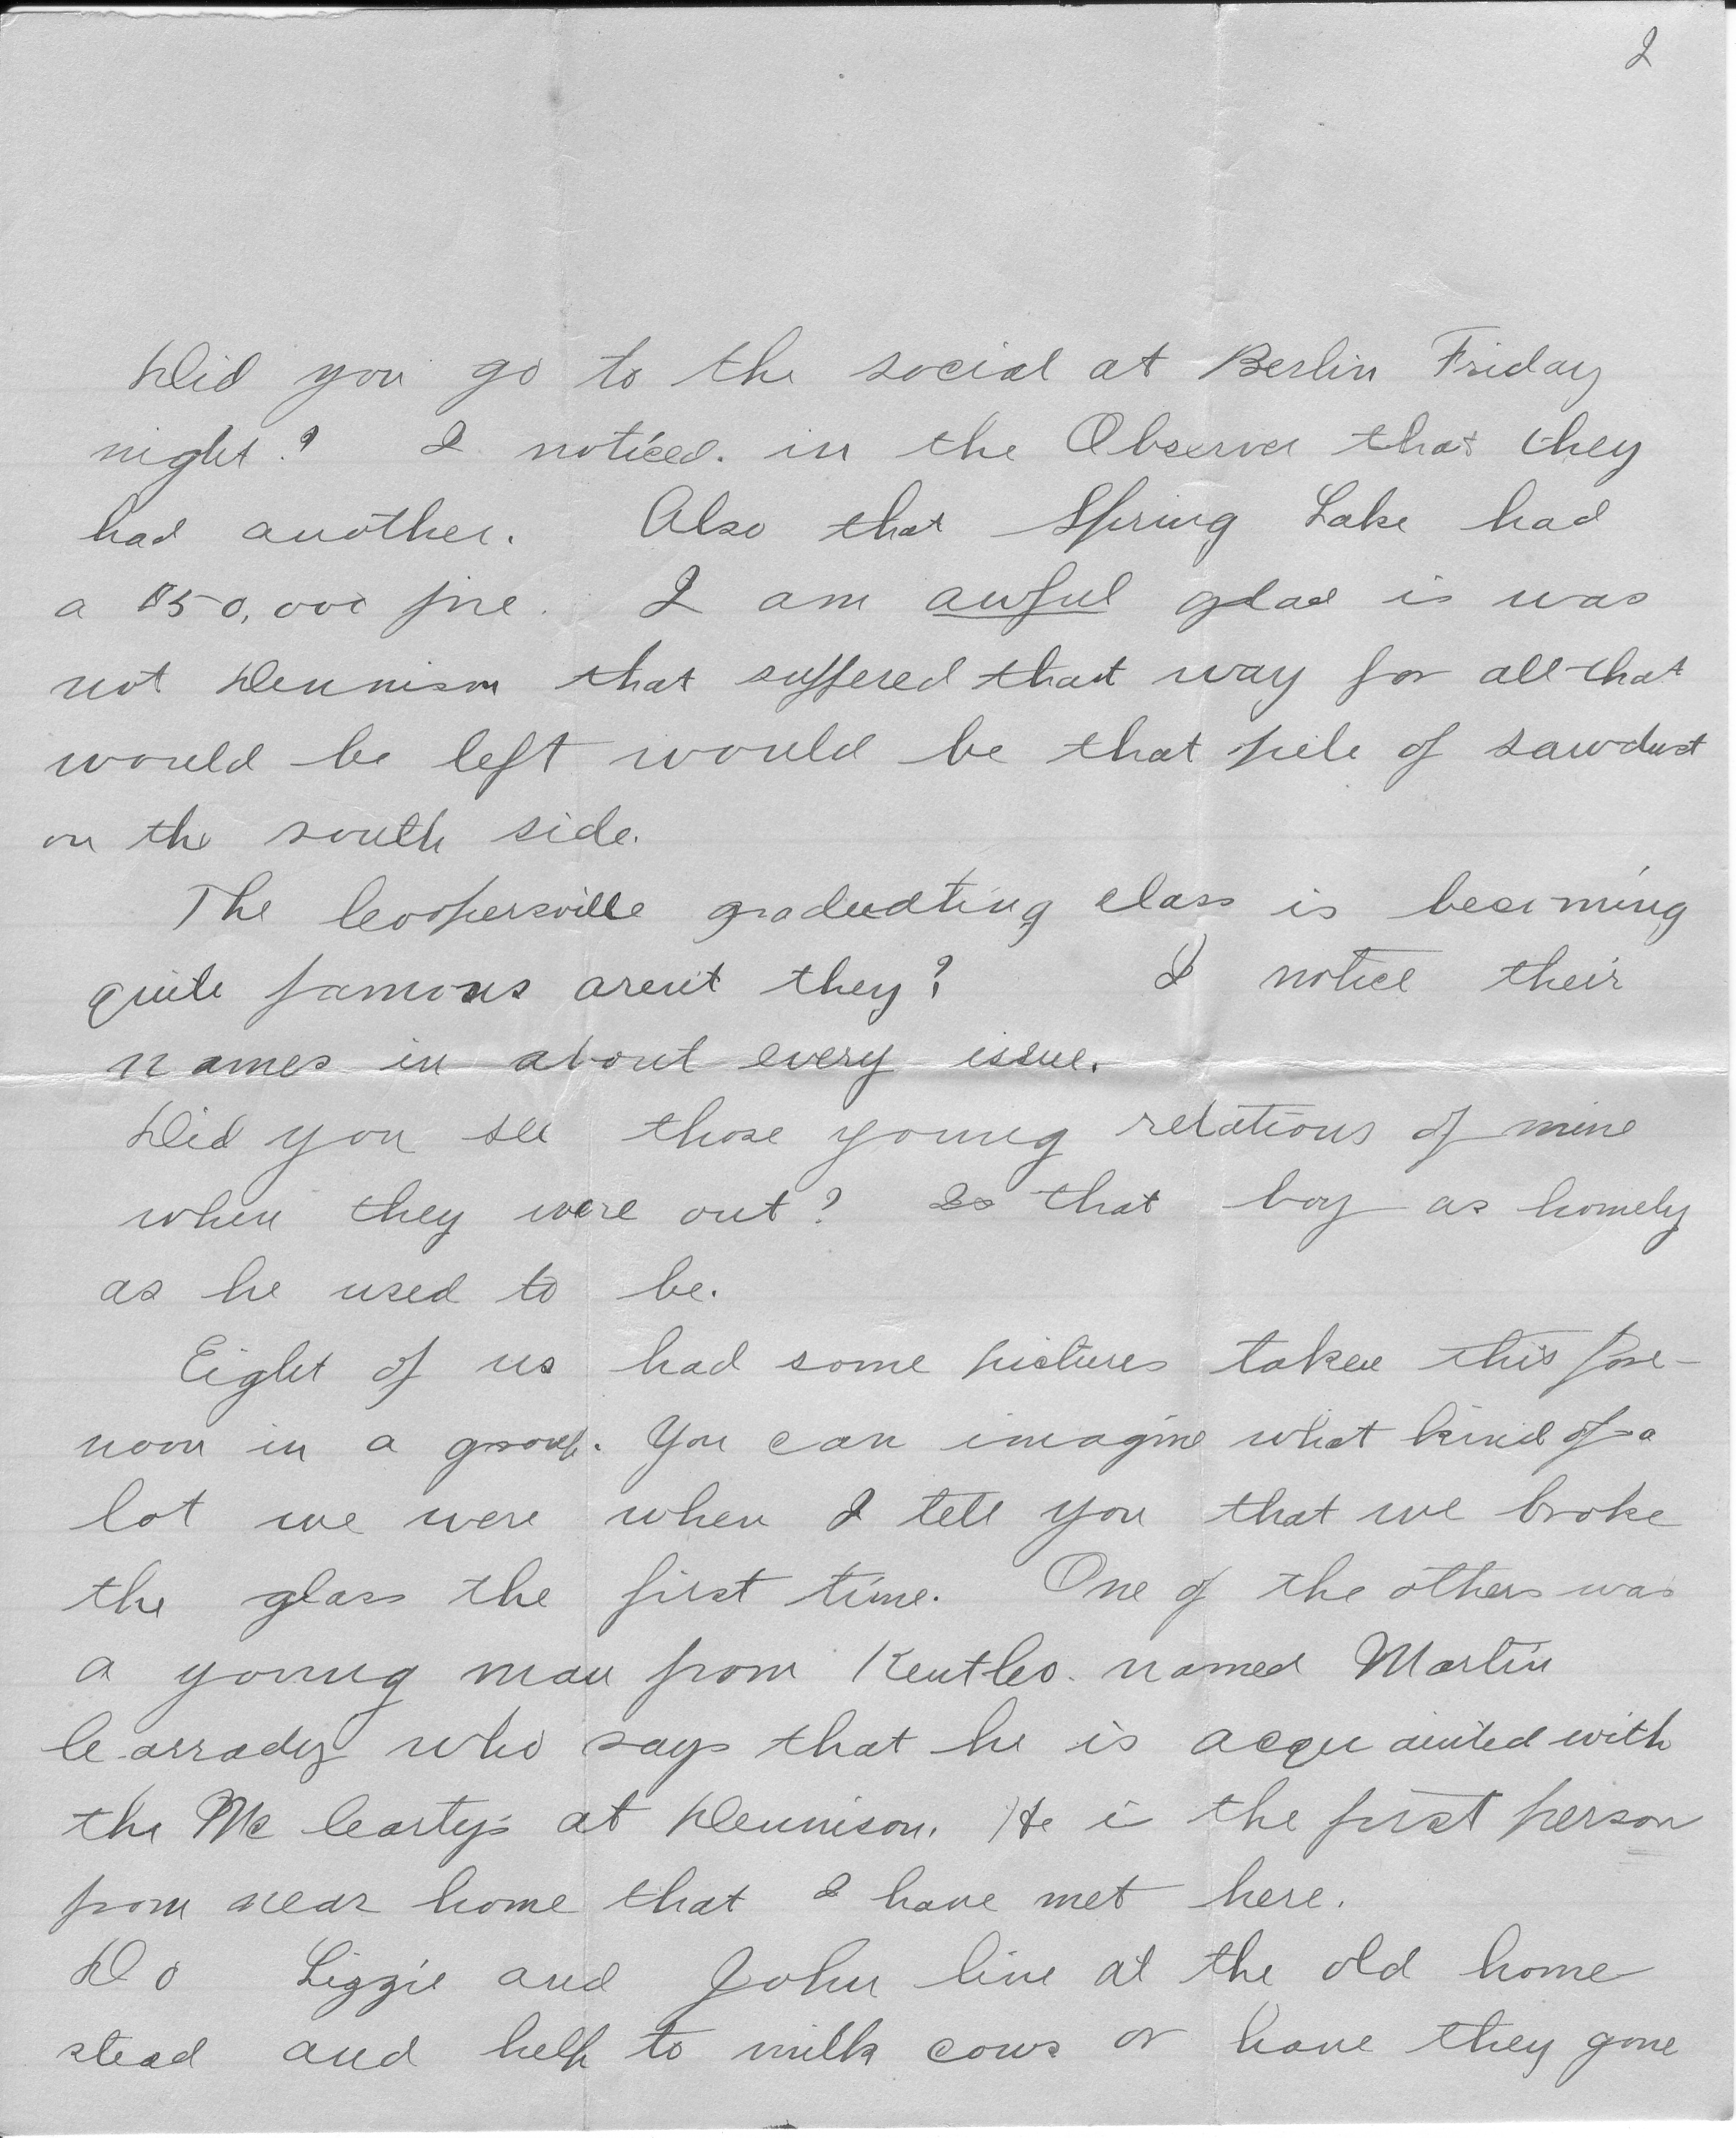 2
Did you go to the social at Berlin Friday
night? I noticed in the Observer that they
had another. Also that Spring Lake had
a $50,000 fire. I am awful glad is was
not Dennison that suffered that way for all that
would be left would be that pile of sawdust
on the south side.
The Coopersville graduating class is becoming
quite famous aren't they? I notice their
names in about every issue.
Did you see those young relations of mine
when they were out? Is that boy as homely
as he used to be.
Eight of us had some pictures taken this fore-
noon in a group. You can imagine what kind of a
lot we were when I tell you that we broke
the glass the first time. One of the others was
a young man from Kent Co. named Martin
Carrady who says that he is acquainted with
the Mc Carty's at Dennison. He is the first person
from near home that I have met here.
Do Lizzie and John live at the old home
stead and help to milk cows or have they gone